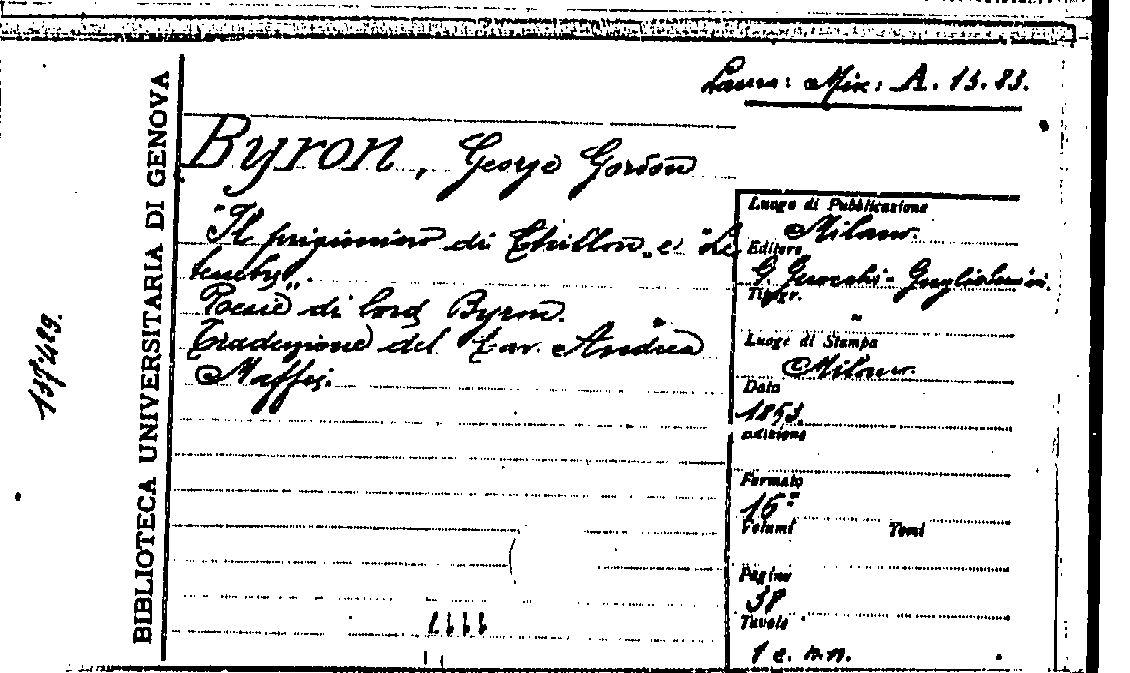 Laura: Mix: A. 13.83.
Byron, George Gordon
"Il prigioniero di Chillon" e "Le
tenebre".
Poesie di lord Byron.
Traduzione del Cav. Andrea
Maffei.
BIBLIOTECA UNIVERSITARIA DI GENOVA
Luogo di Pubblicazione
Milano.
Editore
G.
Tipogr.
"
Luogo di Stampa
Milano.
Data
1853.
edizione
Formato
16°
Volumi Tomi
Pagine
38
Tavole
1 c. n.n.